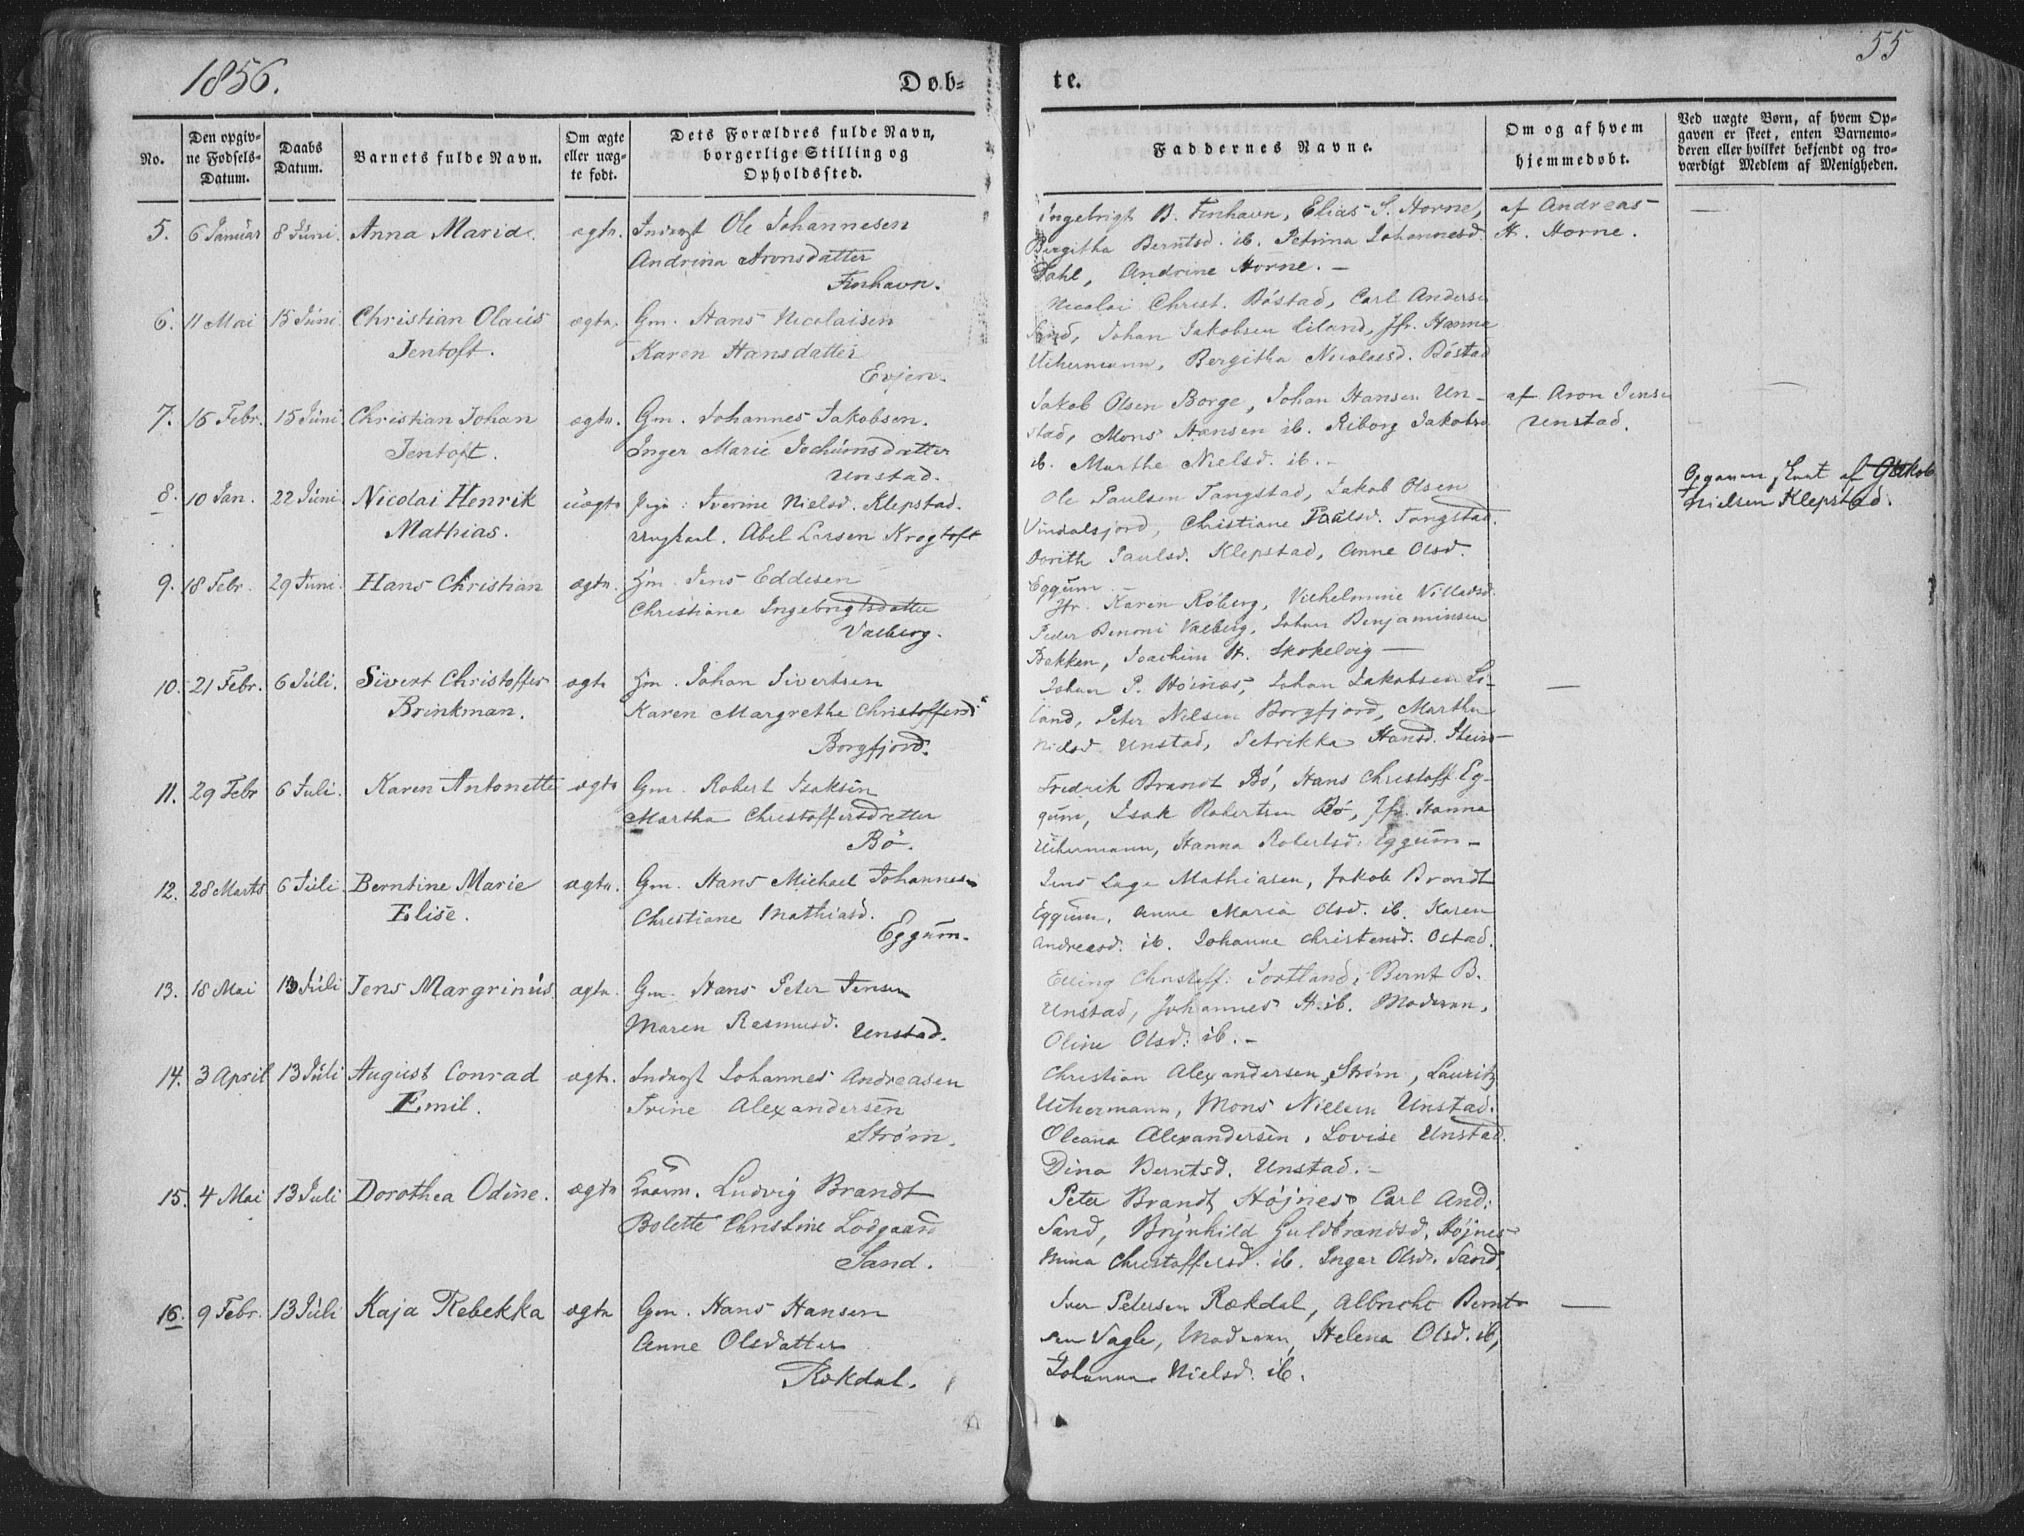 1856.
Døb-
te.
55
No.
Den opgiv-
ne Fødsels-
Datum.
Daabs
Datum.
Barnets fulde Navn.
Om ægte
eller uæg-
te født.
Dets Forældres fulde Navn,
borgerlige Stilling og
Opholdssted.
Faddernes Navne.
Om og af hvem
hjemmedøbt.
Ved uægte Børn, af hvem Op-
gaven er skeet, enten Barnemo-
deren eller hvilket bekjendt og tro-
værdigt Medlem af Menigheden.
5. 6 Januar 8 Juni. Anna Maria. ægte. Inderst Ole Johannesen
Andrina Aronsdatter
Finhavn.
Ingebrigt B. Finhavn, Elias S. Horne,
Bergitha Berntsd. ib. Petrina Johannesd.
Dahl, Andrine Horne. –
af Andreas
H. Horne.
6. 11 Mai 15 Juni. Christian Olaüs
Jentoft.
ægte. Gm. Hans Nicolaisen
Karen Hansdatter
Evjen.
Nicolai Christ. Böstad, Carl Anders.
Sand, Johan Jakobsen Liland, Jfr. Hanna
Uchermann, Bergitha Nicolaisd. Böstad
7. 16 Febr. 15 Juni Christian Johan
Jentoft.
ægte. Gm. Johannes Jakobsen.
Inger Marie Jochumsdatter
Unstad.
Jakob Olsen Borge, Johan Hansen Un-
stad, Mons Hansen ib. Riborg Jakobsd
ib. Marthe Nielsd. ib. –
af Aron Jens.
Unstad.
8. 10 Jan. 22 Juni Nicolai Henrik
Mathias.
uægte Pige: Iverine Nielsd. Klepstad.
Ungkarl. Abel Larsen Krogtoft
Ole Paulsen Tangstad, Jakob Olsen
Vindalsfjord, Christiane Paulsd. Tangstad.
Dorith Paulsd. Klepstad, Anne Olsd.
Eggum
Opgaven skeet af Jakob
Nielsen Klepstad.
9. 18 Febr. 29 Juni. Hans Christian ægte. Hm. Jens Eddesen
Christiane Ingebrigtsdatter
Valberg.
Jfr. Karen Röberg, Vilhelmine Villadsd.
Peder Benoni Valberg, Johan Benjaminsen
Bakken, Joachim H. Skokelvig —
10. 21 Febr. 6 Juli. Sivert Christoffer
Brinkman.
ægte Hm. Johan Sivertsen
Karen Margrethe Christoffersd
Borgfjord.
Johan P. Höinæs, Johan Jakobsen Li-
land, Peter Nilsen Borgfjord, Martha
Nielsd Unstad, Petrikka Hansd. Stein –
11. 29 Febr 6 Juli. Karen Antonette ægte Gm. Robert Isaksen
Martha Christoffersdatter
Bö.
Fredrik Brandt Bö, Hans Christoff. Eg-
gum, Isak Robertsen Bö, Jfr. Hanna
Uchermann, Hanna Robertsd: Eggum –
12. 28 Marts 6 Juli Berntine Marie
Elise.
ægte. Gm. Hans Michael Johannesen
Christiane Mathiasd.
Eggum.
Jens Lage Mathiasen, Jakob Brandt
Eggum, Anne Maria Olsd. ib. Karen
Andreasd. ib. Johanne Christensd. Ostad.
13. 18 Mai 13 Juli Jens Margrinus ægte. Gm. Hans Peter Jensen
Maren Rasmusd. Unstad.
Elling Christoff. Portland, Bernt B.
Unstad, Johannes H. ib. Moderen,
Oline Olsd. ib. –
14. 3 April 13 Juli August Conrad
Emil.
ægte. Inderst Johannes Andreasen
Trine Alexandersen
Strøm.
Christian Alexandersen Strøm, Lauritz
Uchermann, Mons Nielsen Unstad.
Oleana Alexandersen, Lovise Unstad.
Dina Berntsd. Unstad. –
15. 4 Mai 13 Juli Dorothea Odine. ægte Huusm. Ludvig Brandt
Bolette Christine Lodgaard
Sand.
Peter Brandt Højnes, Carl And:
Sand, Brynhild Guldbrandsd. Højnes
Mina Christoffersd. ib. Inger Olsd. Sand,
16. 9 Febr. 13 Juli Kaja Rebekka ægte Gm. Hans Hansen
Anne Olsdatter
Rækdal.
Iver Petersen Rækdal, Albricht Bernt-
sen Vagle, Moderen, Helena Olsd. ib,
Johanna Nielsd. ib.